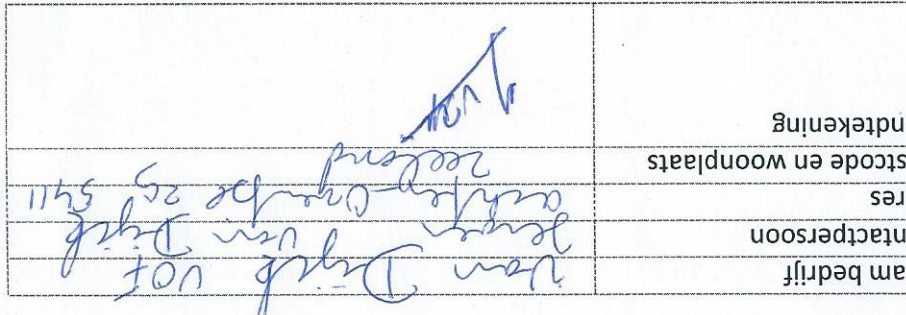 am bedrijf Van Dijck VOF
ntactpersoon Jeroen van Dijck
res 29 5411
stcode en woonplaats Zeeland
ndtekening